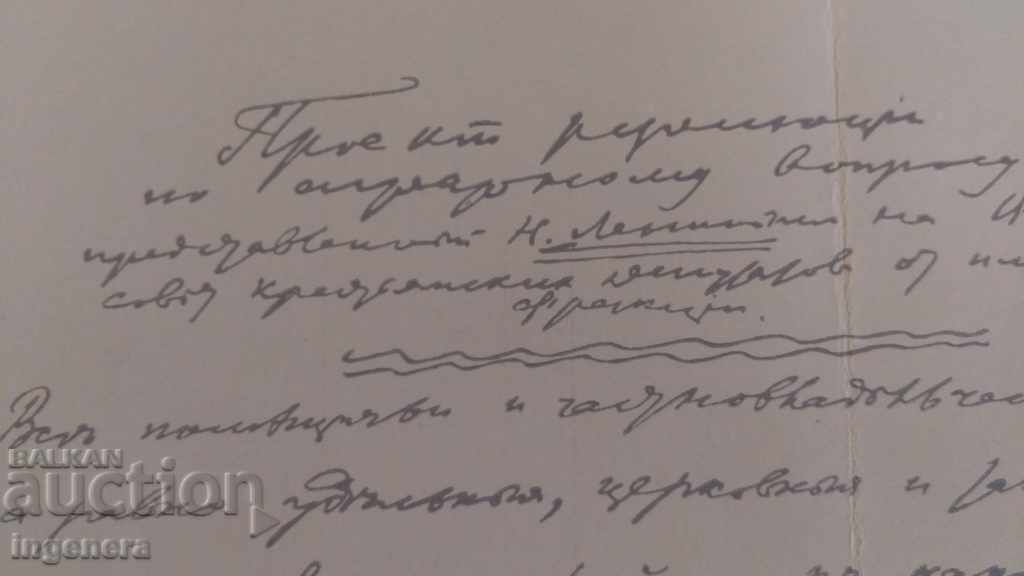 Проект резолюции
по аграрному вопросу
представленный Н. Лениным на
совет крестьянских депутатов от
фракции.
Все помещичьи и частновладельчес
а равно удѣльныя, церковныя и
BALKAN
auction
ingenera